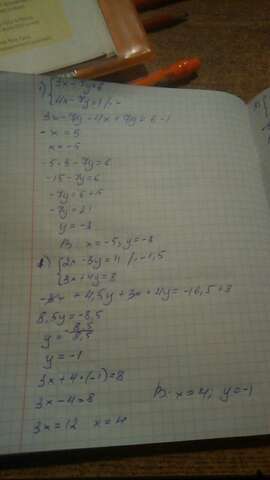 1) {3x-7y=6
4x-7y=1 /.-
3x-7y-4x+7y=6-1
-x=5
x=-5
-5·3-7y=6
-15-7y=6
-7y=6+15
-7y=21
y=-3
В: x=-5; y=-3
{2x-3y=11 /.-1,5
3x+4y=8
-3x+4,5y+3x+4y=-16,5+8
8,5y=-8,5
y=-8,5/8,5
y=-1
3x+4·(-1)=8
3x-4=8
3x=12 x=4
В: x=4; y=-1